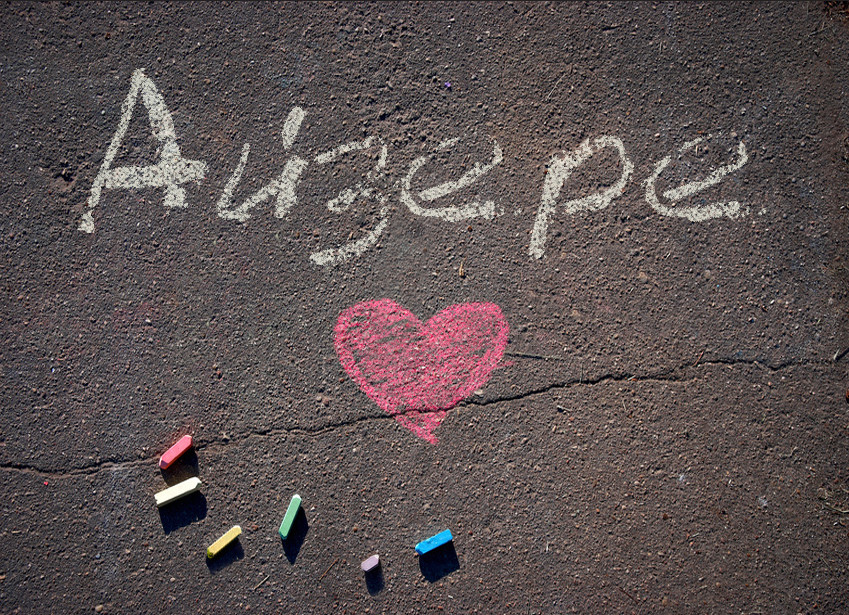 Аизере